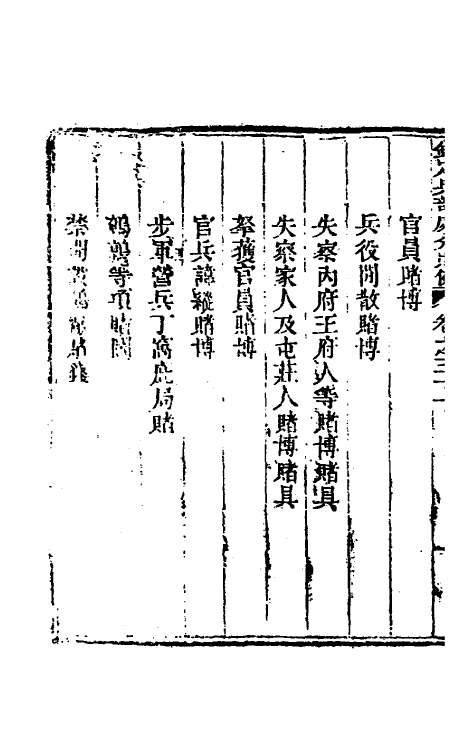 官員賭博
兵役閒散賭博
失察內府王府人等賭博賭具
失察家人及屯莊人賭博賭具
拏獲官員賭博
官兵諱縱賭博
步軍營兵丁窩庇局賭
鵪鶉等項賭鬭
禁開鬭鵪鶉